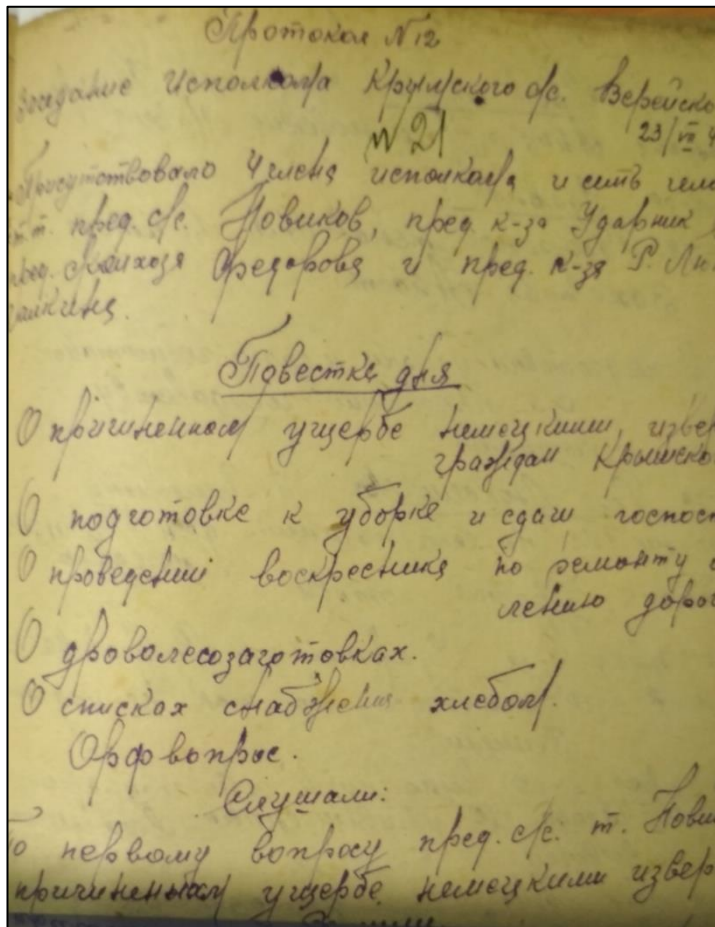 Протокол N 12
Заседание Исполкома Крымского с/с. Верейско
N 21
23/VII 4
Присутствовало 4 члена исполкома и
т.т. пред. с/с. Новиков, пред. к-за Ударник
пред. колхоза Федорова и пред. к-за Р. Лу
Повестка дня
О причиненном ущербе немецкими извер
граждан Крымско
О подготовке к уборке и сдачи госпост
О проведении воскресника по ремонту
лению дорог
О дроволесозаготовках.
О списках снабжения хлебом.
Орг вопрос.
Слушали:
По первому вопросу пред. с/с. т. Нови
причиненным ущербе немецкими извер